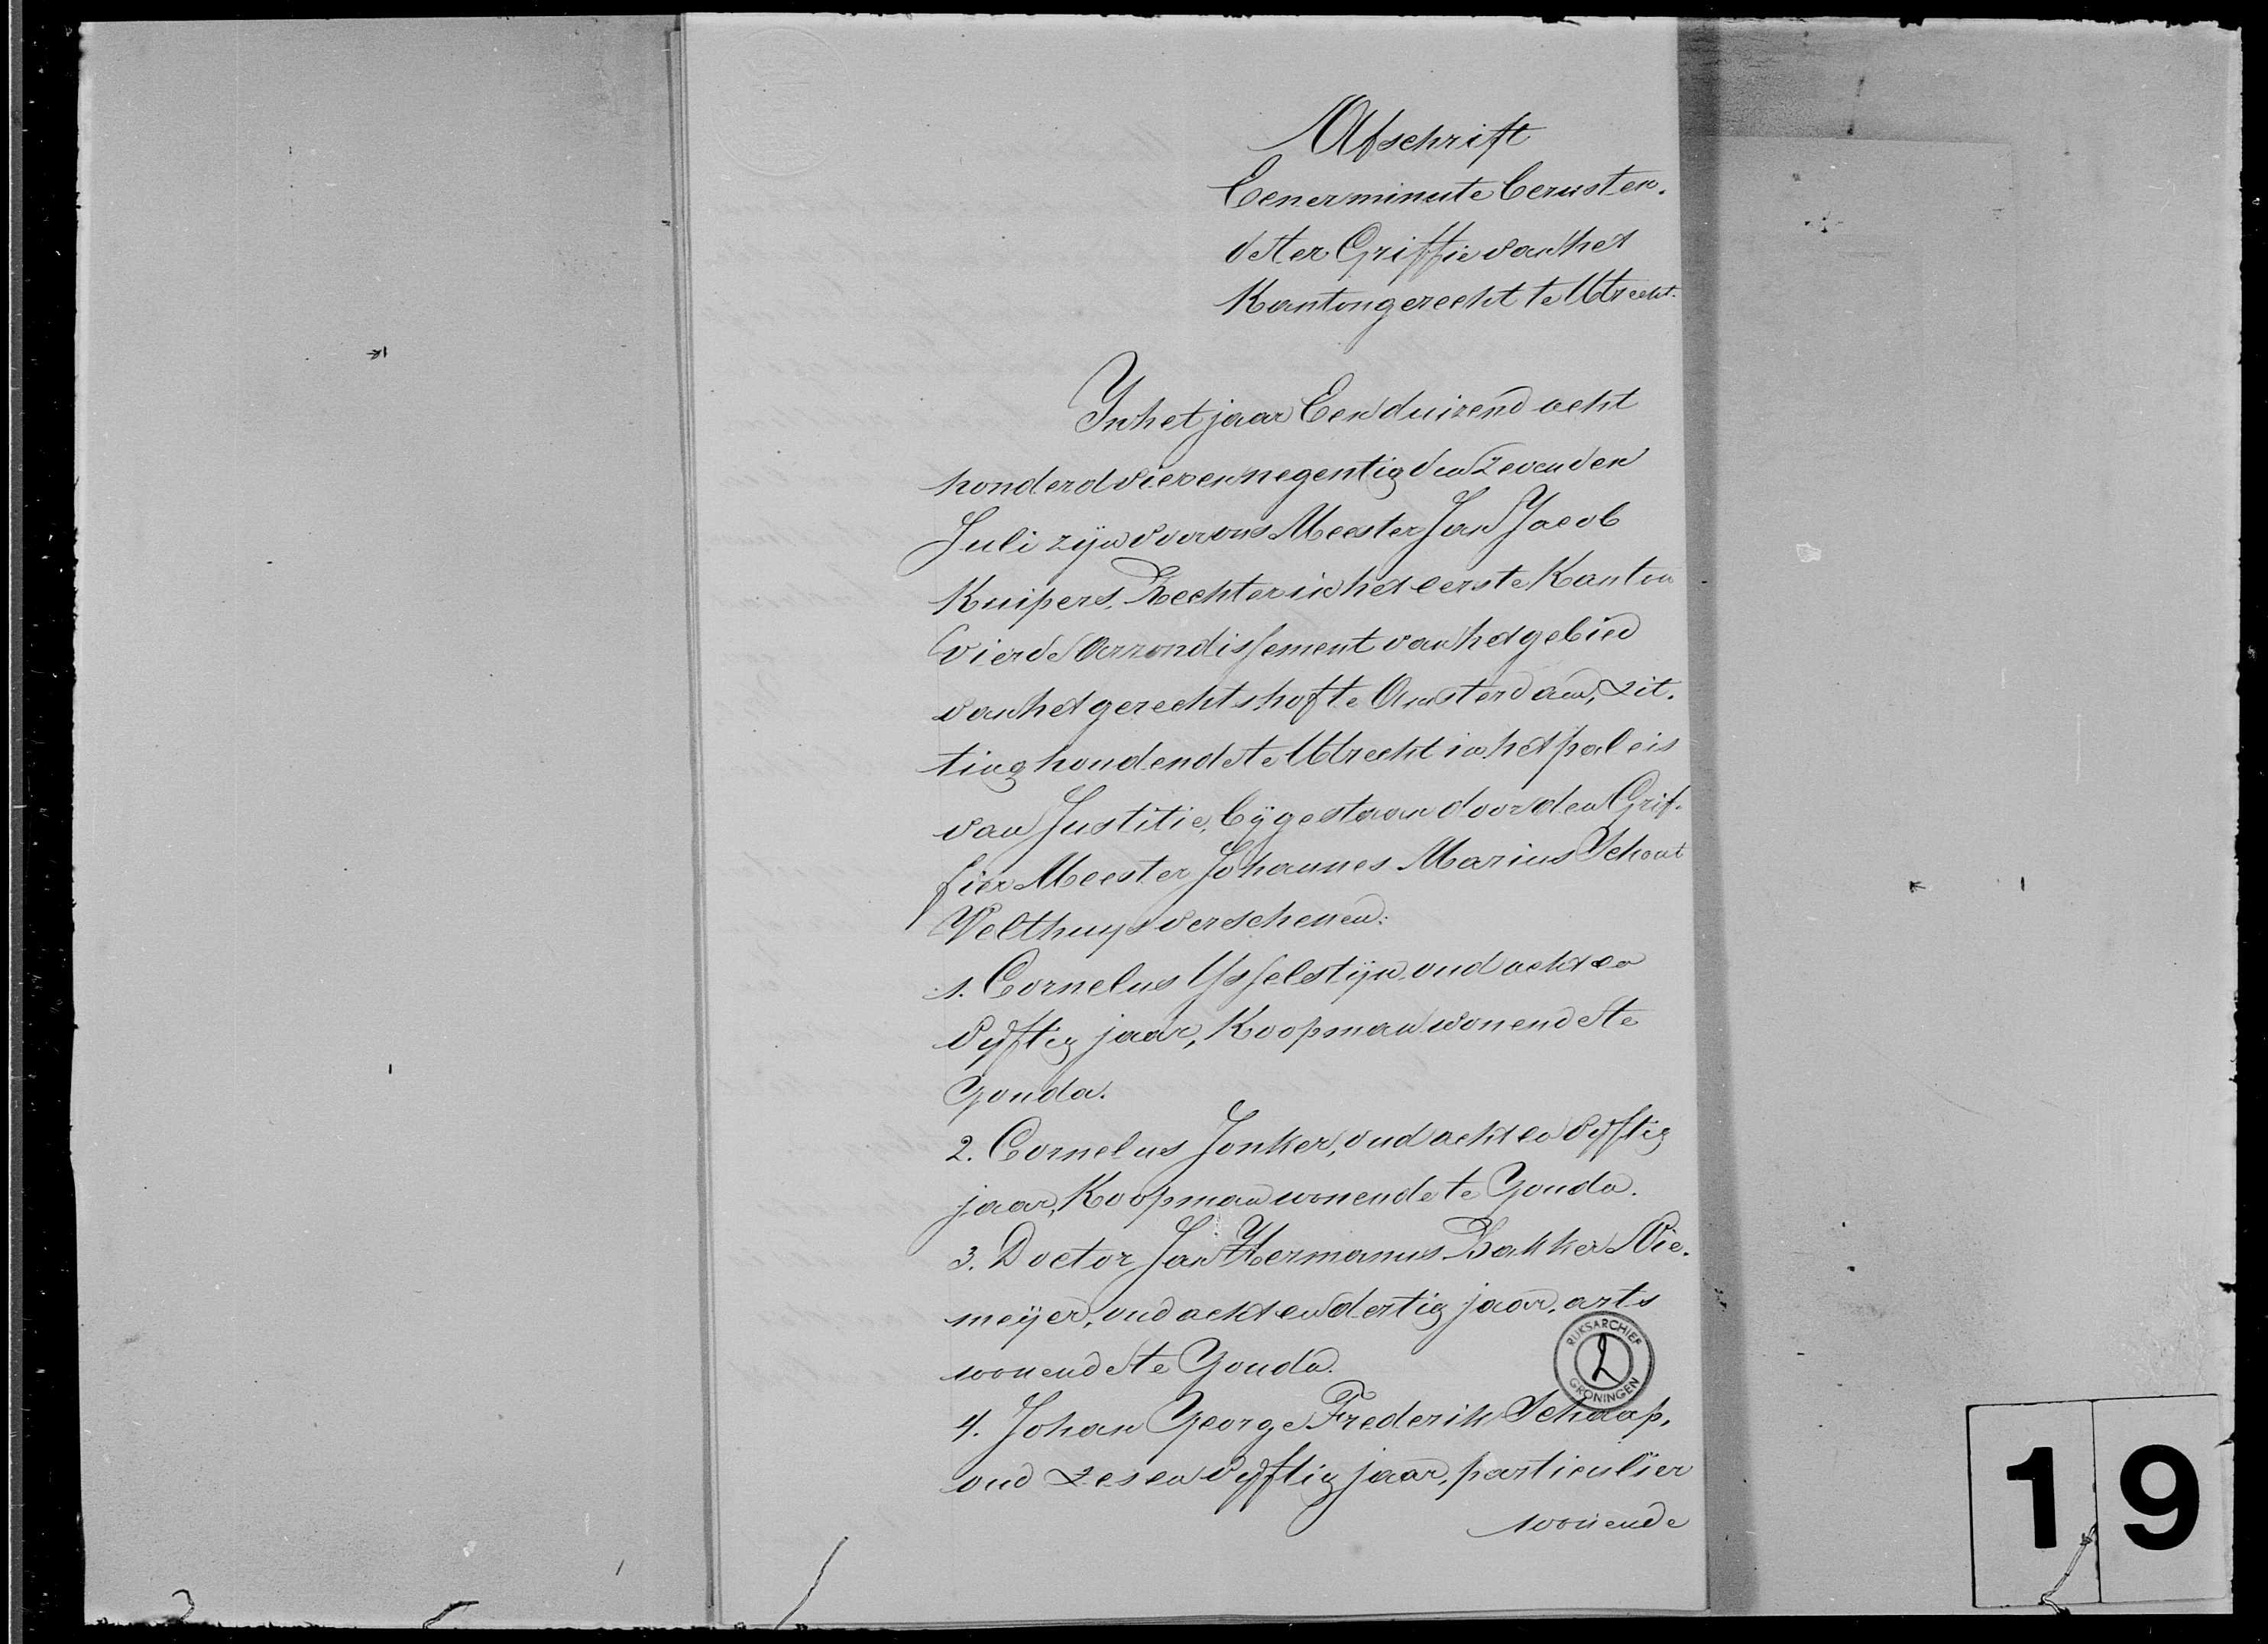 Afschrift
Eener minute berusten.
de ter Griffie van het
Kantongerecht te Utrecht.
In het jaar Eenduizend acht
honderd vier en negentig den zevenden
Juli zijn voor ons Meester Jan Jacob
Kuipers, Rechter in het eerste Kanton
vierde Arrondissement van het gebied
van het gerechtshof te Amsterdam, zit.
ting houdende te Utrecht in het paleis
van Justitie, bijgestaan door den Grif.
fier Meester Johannes Marius Schout
Velthuys verschenen:
1. Cornelus IJsselstijn oud acht en
vijftig jaar, Koopman wonende te
Gouda.
2. Cornelus Jonker, oud acht en vijftig
jaar, Koopman wonende te Gouda.
3. Doctor Jan Hermanus Bakker Nie.
meijer, oud acht en dertig jaar, arts
wonende te Gouda.
RIJKSARCHIEF
2
GRONINGEN
4. Johan George Frederik Schaap,
oud zes en vijftig jaar, particulier
wonende
19